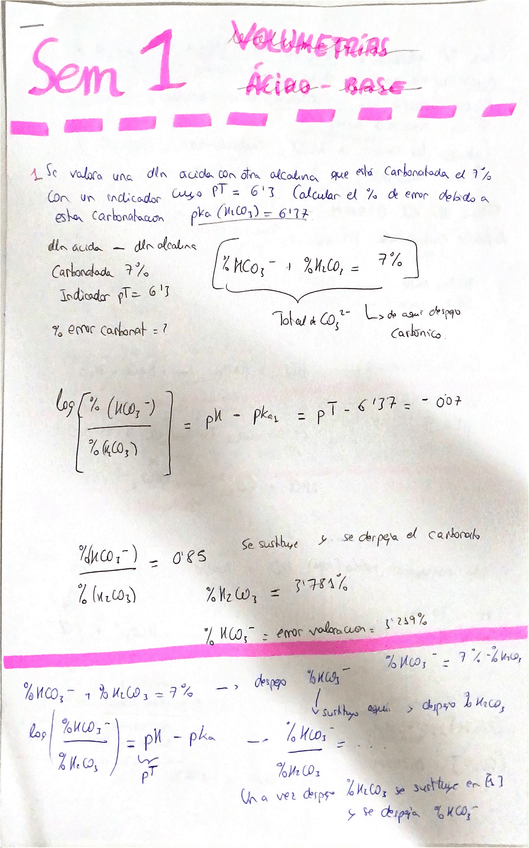 Sem 1
VOLUMETRÍAS
ÁCIDO - BASE
1 Se valora una dln acida con otra alcalina que está carbonatada el 7%
con un indicador cuyo pT = 6'3 Calcular el % de error debido a
esta carbonatacion pka (H₂CO₃) = 6'37
dln acida — dln alcalina
Carbonatada 7%
Indicador pT = 6'3
% error carbonat = ?
[% HCO₃⁻ + % H₂CO₃ = 7%]
Total de CO₃²⁻ ↳ de aqui despejo
carbónico
log [% (HCO₃⁻) / % (H₂CO₃)] = pH - pka₁ = pT - 6'37 = - 0'07
%(HCO₃⁻) / % (H₂CO₃) = 0'85
Se sustituye y se despeja el carbonato
% H₂CO₃ = 3'781%
% HCO₃⁻ = error valoracion = 3'219%
% HCO₃⁻ + % H₂CO₃ = 7% → despejo % HCO₃⁻
% HCO₃⁻ = 7% - % H₂CO₃
↓ sustituyo aqui y despejo % H₂CO₃
log (% HCO₃⁻ / % H₂CO₃) = pH - pka — % HCO₃ / % H₂CO₃ = ....
pT
Una vez despejo % H₂CO₃ se sustituye en [1]
y se despeja % HCO₃⁻